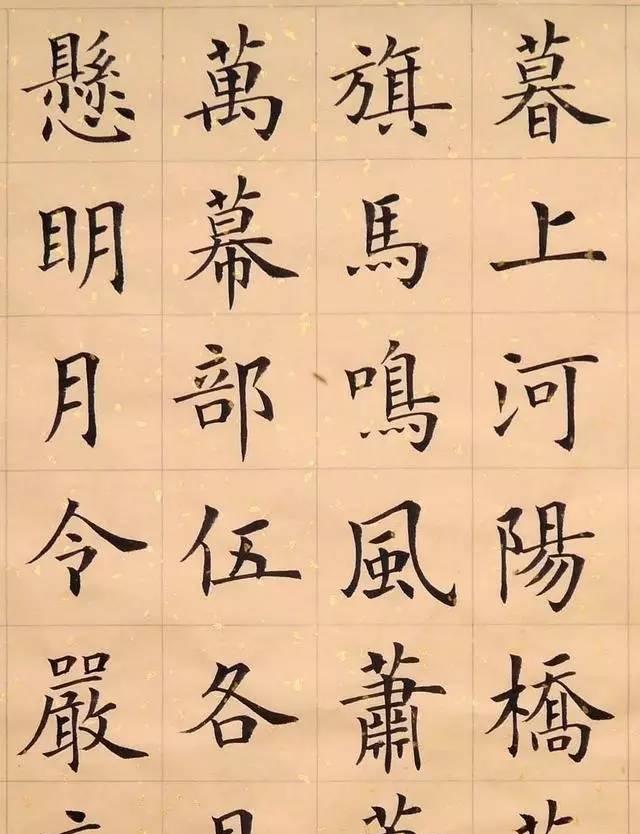 暮上河陽橋
旗馬鳴風蕭
萬幕部伍各
懸眀月令嚴